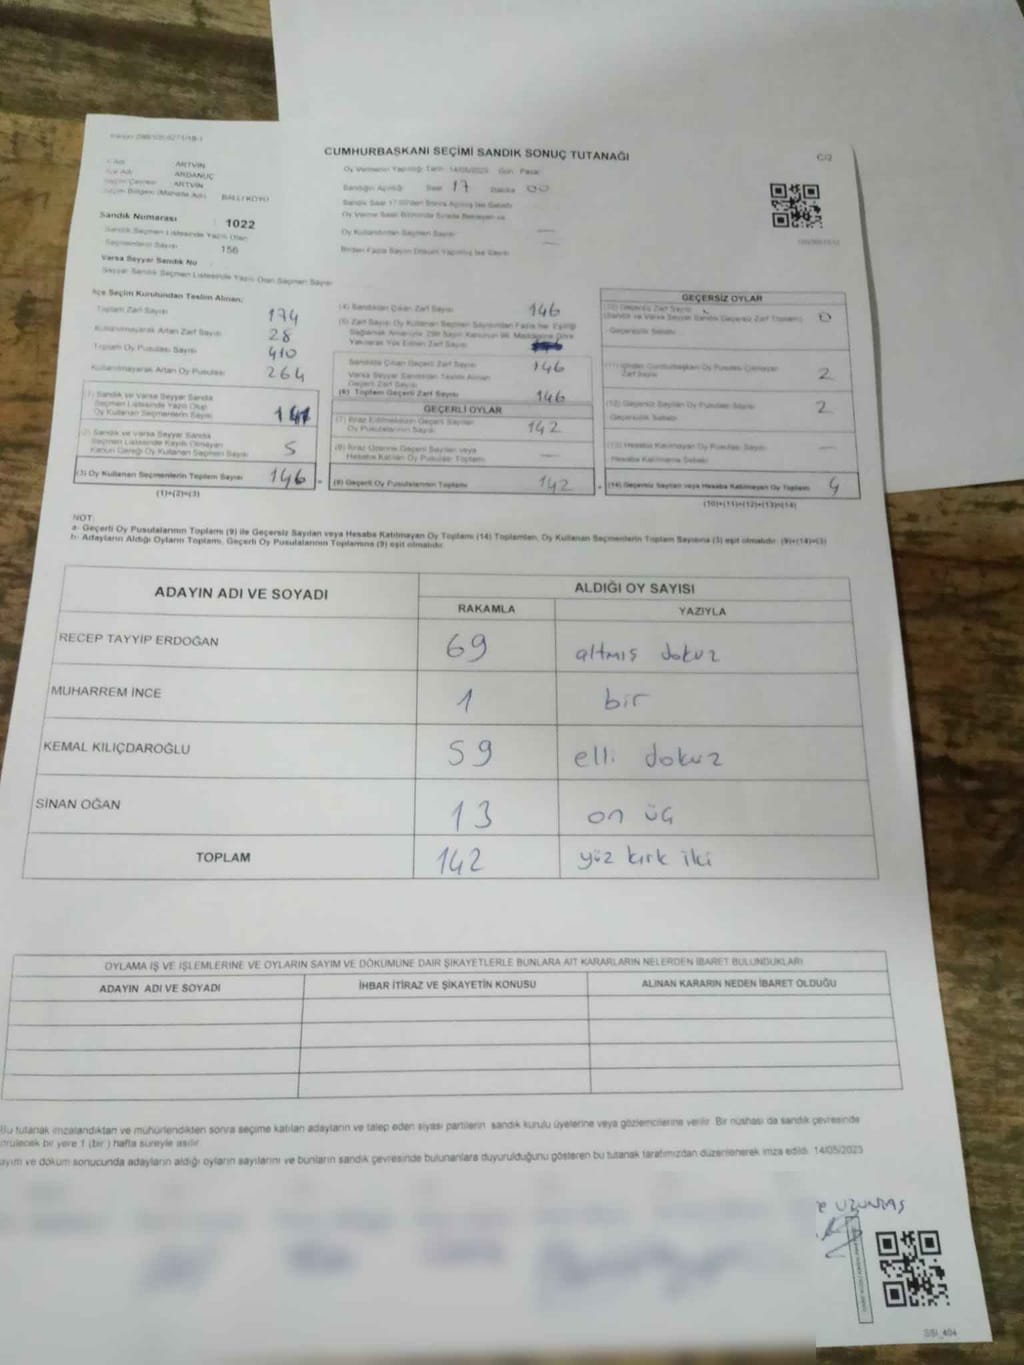 CUMHURBAŞKANI SEÇİMİ SANDIK SONUÇ TUTANAĞI
C/2
İl Adı ARTVİN
İlçe Adı ARDANUÇ
Seçim Çevresi ARTVİN
Seçim Bölgesi (Mahalle Adı) BALLI KÖYÜ
Sandık Numarası 1022
Sandık Seçmen Listesinde Yazılı Olan
Seçmenlerin Sayısı 156
Varsa Seyyar Sandık No
Seyyar Sandık Seçmen Listesinde Yazılı Olan Seçmen Sayısı
Oy Vermenin Yapıldığı Tarih 14/05/2023 Gün Pazar
Sandığın Açıldığı Saat 17 Dakika 00
Oy Kullandırılan Seçmen Sayısı —
İlçe Seçim Kurulundan Teslim Alınan;
Toplam Zarf Sayısı 174
Kullanılmayarak Artan Zarf Sayısı 28
Toplam Oy Pusulası Sayısı 410
Kullanılmayarak Artan Oy Pusulası 264
(1) Sandık ve Varsa Seyyar Sandık
Seçmen Listesinde Yazılı Olup
Oy Kullanan Seçmenlerin Sayısı 141
(2) Sandık ve Varsa Seyyar Sandık
Seçmen Listesinde Kayıtlı Olmayan
Kanun Gereği Oy Kullanan Seçmen Sayısı 5
(3) Oy Kullanan Seçmenlerin Toplam Sayısı 146
(1)+(2)=(3)
(4) Sandıktan Çıkan Zarf Sayısı 146
(5) Zarf Sayısı Oy Kullanan Seçmen Sayısından Fazla İse, Eşitliği
Sağlamak Amacıyla 298 Sayılı Kanunun 98. Maddesine Göre
Yakılarak Yok Edilen Zarf Sayısı
Sandıkta Çıkan Geçerli Zarf Sayısı 146
Varsa Seyyar Sandıktan Teslim Alınan
Geçerli Zarf Sayısı
(6) Toplam Geçerli Zarf Sayısı 146
GEÇERLİ OYLAR
(7) İtiraz Edilmeksizin Geçerli Sayılan
Oy Pusulalarının Sayısı 142
(8) İtiraz Üzerine Geçerli Sayılan veya
Hesaba Katılan Oy Pusulası Toplamı —
(9) Geçerli Oy Pusulalarının Toplamı 142
GEÇERSİZ OYLAR
(10) Geçersiz Zarf Sayısı
(Sandık ve Varsa Seyyar Sandık Geçersiz Zarf Toplamı) 0
Geçersizlik Sebebi
(11) İçinden Cumhurbaşkanı Oy Pusulası Çıkmayan
Zarf Sayısı 2
(12) Geçersiz Sayılan Oy Pusulası Sayısı 2
Geçersizlik Sebebi
(13) Hesaba Katılmayan Oy Pusulası Sayısı —
Hesaba Katılmama Sebebi
(14) Geçersiz Sayılan veya Hesaba Katılmayan Oy Toplamı 4
(10)+(11)+(12)+(13)=(14)
NOT:
a- Geçerli Oy Pusulalarının Toplamı (9) ile Geçersiz Sayılan veya Hesaba Katılmayan Oy Toplamı (14) Toplamları, Oy Kullanan Seçmenlerin Toplam Sayısına (3) eşit olmalıdır. (9)+(14)=(3)
b- Adayların Aldığı Oyların Toplamı, Geçerli Oy Pusulalarının Toplamına (9) eşit olmalıdır.
ADAYIN ADI VE SOYADI ALDIĞI OY SAYISI
RAKAMLA YAZIYLA
RECEP TAYYİP ERDOĞAN 69 altmış dokuz
MUHARREM İNCE 1 bir
KEMAL KILIÇDAROĞLU 59 elli dokuz
SİNAN OĞAN 13 on üç
TOPLAM 142 yüz kırk iki
OYLAMA İŞ VE İŞLEMLERİNE VE OYLARIN SAYIM VE DÖKÜMÜNE DAİR ŞİKAYETLERLE BUNLARA AİT KARARLARIN NELERDEN İBARET BULUNDUKLARI
ADAYIN ADI VE SOYADI İHBAR İTİRAZ VE ŞİKAYETİN KONUSU ALINAN KARARIN NEDEN İBARET OLDUĞU
Bu tutanak imzalandıktan ve mühürlendikten sonra seçime katılan adayların ve talep eden siyasi partilerin sandık kurulu üyelerine veya gözlemcilerine verilir. Bir nüshası da sandık çevresinde
örülecek bir yere 1 (bir) hafta süreyle asılır.
ayım ve döküm sonucunda adayların aldığı oyların sayılarını ve bunların sandık çevresinde bulunanlara duyurulduğunu gösteren bu tutanak tarafımızdan düzenlenerek imza edildi. 14/05/2023
SSI_404